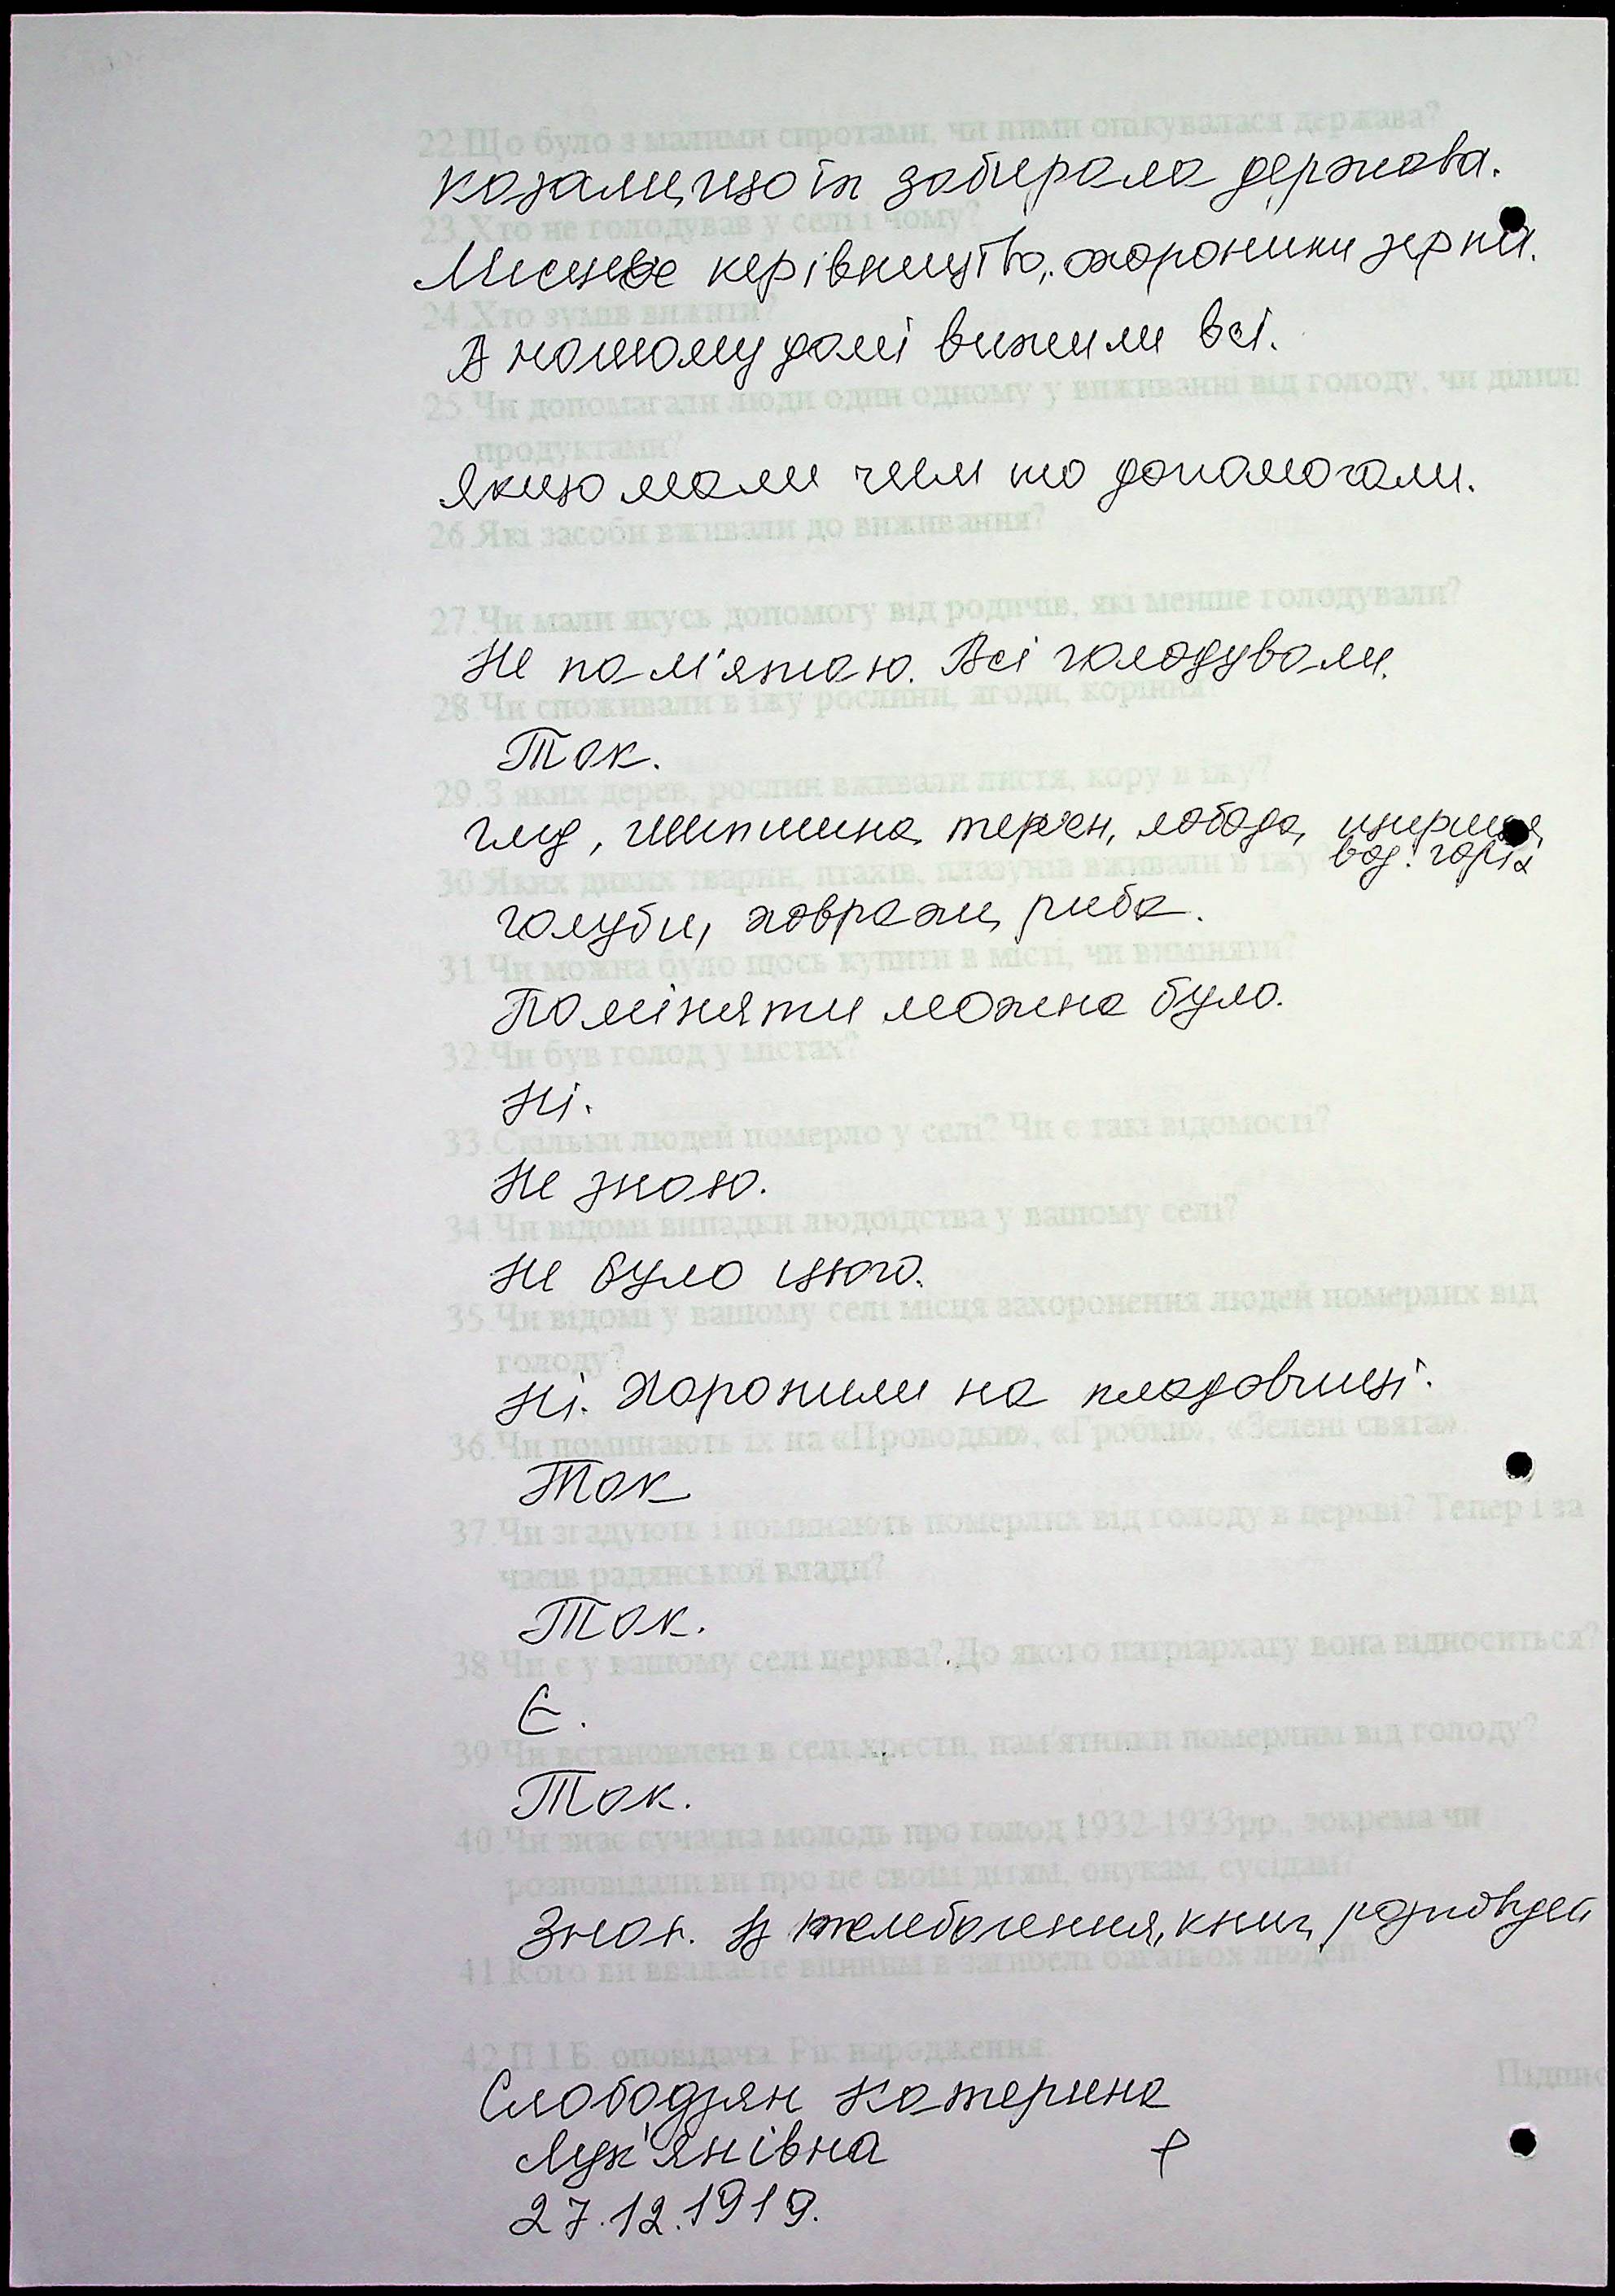 22.Що було з малими сиротами, чи ними опікувалася держава?
Казали, що їх забирала держава.
23.Хто не голодував у селі і чому?
Місцеве керівництво, охоронники зерна.
24.Хто зумів вижити?
В нашому домі вижили всі.
25.Чи допомагали люди один одному у виживанні від голоду, чи ділили
продуктами?
Якщо мали чим то допомогали.
26.Які засоби вживали до виживання?
27.Чи мали якусь допомогу від родичів, які менше голодували?
Не пам'ятаю. Всі голодували.
28.Чи споживали в їжу рослини, ягоди, коріння?
Так.
29.З яких дерев, рослин вживали листя, кору в їжу?
глід, шипшина, терен, лобода, щириця,
вод. горіх
30.Яких диких тварин, птахів, плазунів вживали в їжу
голуби, ховрахи, риба.
31.Чи можна було щось купити в місті, чи виміняти?
Поміняти можна було.
32.Чи був голод у містах?
Ні.
33.Скільки людей померло у селі? Чи є такі відомості?
Не знаю.
34.Чи відомі випадки людоїдства у вашому селі?
Не було цього.
35.Чи відомі у вашому селі місця захоронення людей померлих від
голоду?
Ні. Хоронили на кладовищі.
36.Чи поминають їх на «Проводки», «Гробки», «Зелені свята».
Так
37.Чи згадують і поминають померлих від голоду в церкві? Тепер і за
часів радянської влади?
Так.
38.Чи є у вашому селі церква? До якого патріархату вона відноситься?
Є.
39.Чи встановлені в селі хрести, пам'ятники померлим від голоду?
Так.
40.Чи знає сучасна молодь про голод 1932-1933рр., зокрема чи
розповідали ви про це своїм дітям, онукам, сусідам?
Знає. З телебачення, книг,
41.Кого ви вважаєте винним в загибелі багатьох людей?
42.П.І.Б. оповідача. Рік народження.
Підпис
Слободян Катерина
Лук'янівна
27.12.1919.